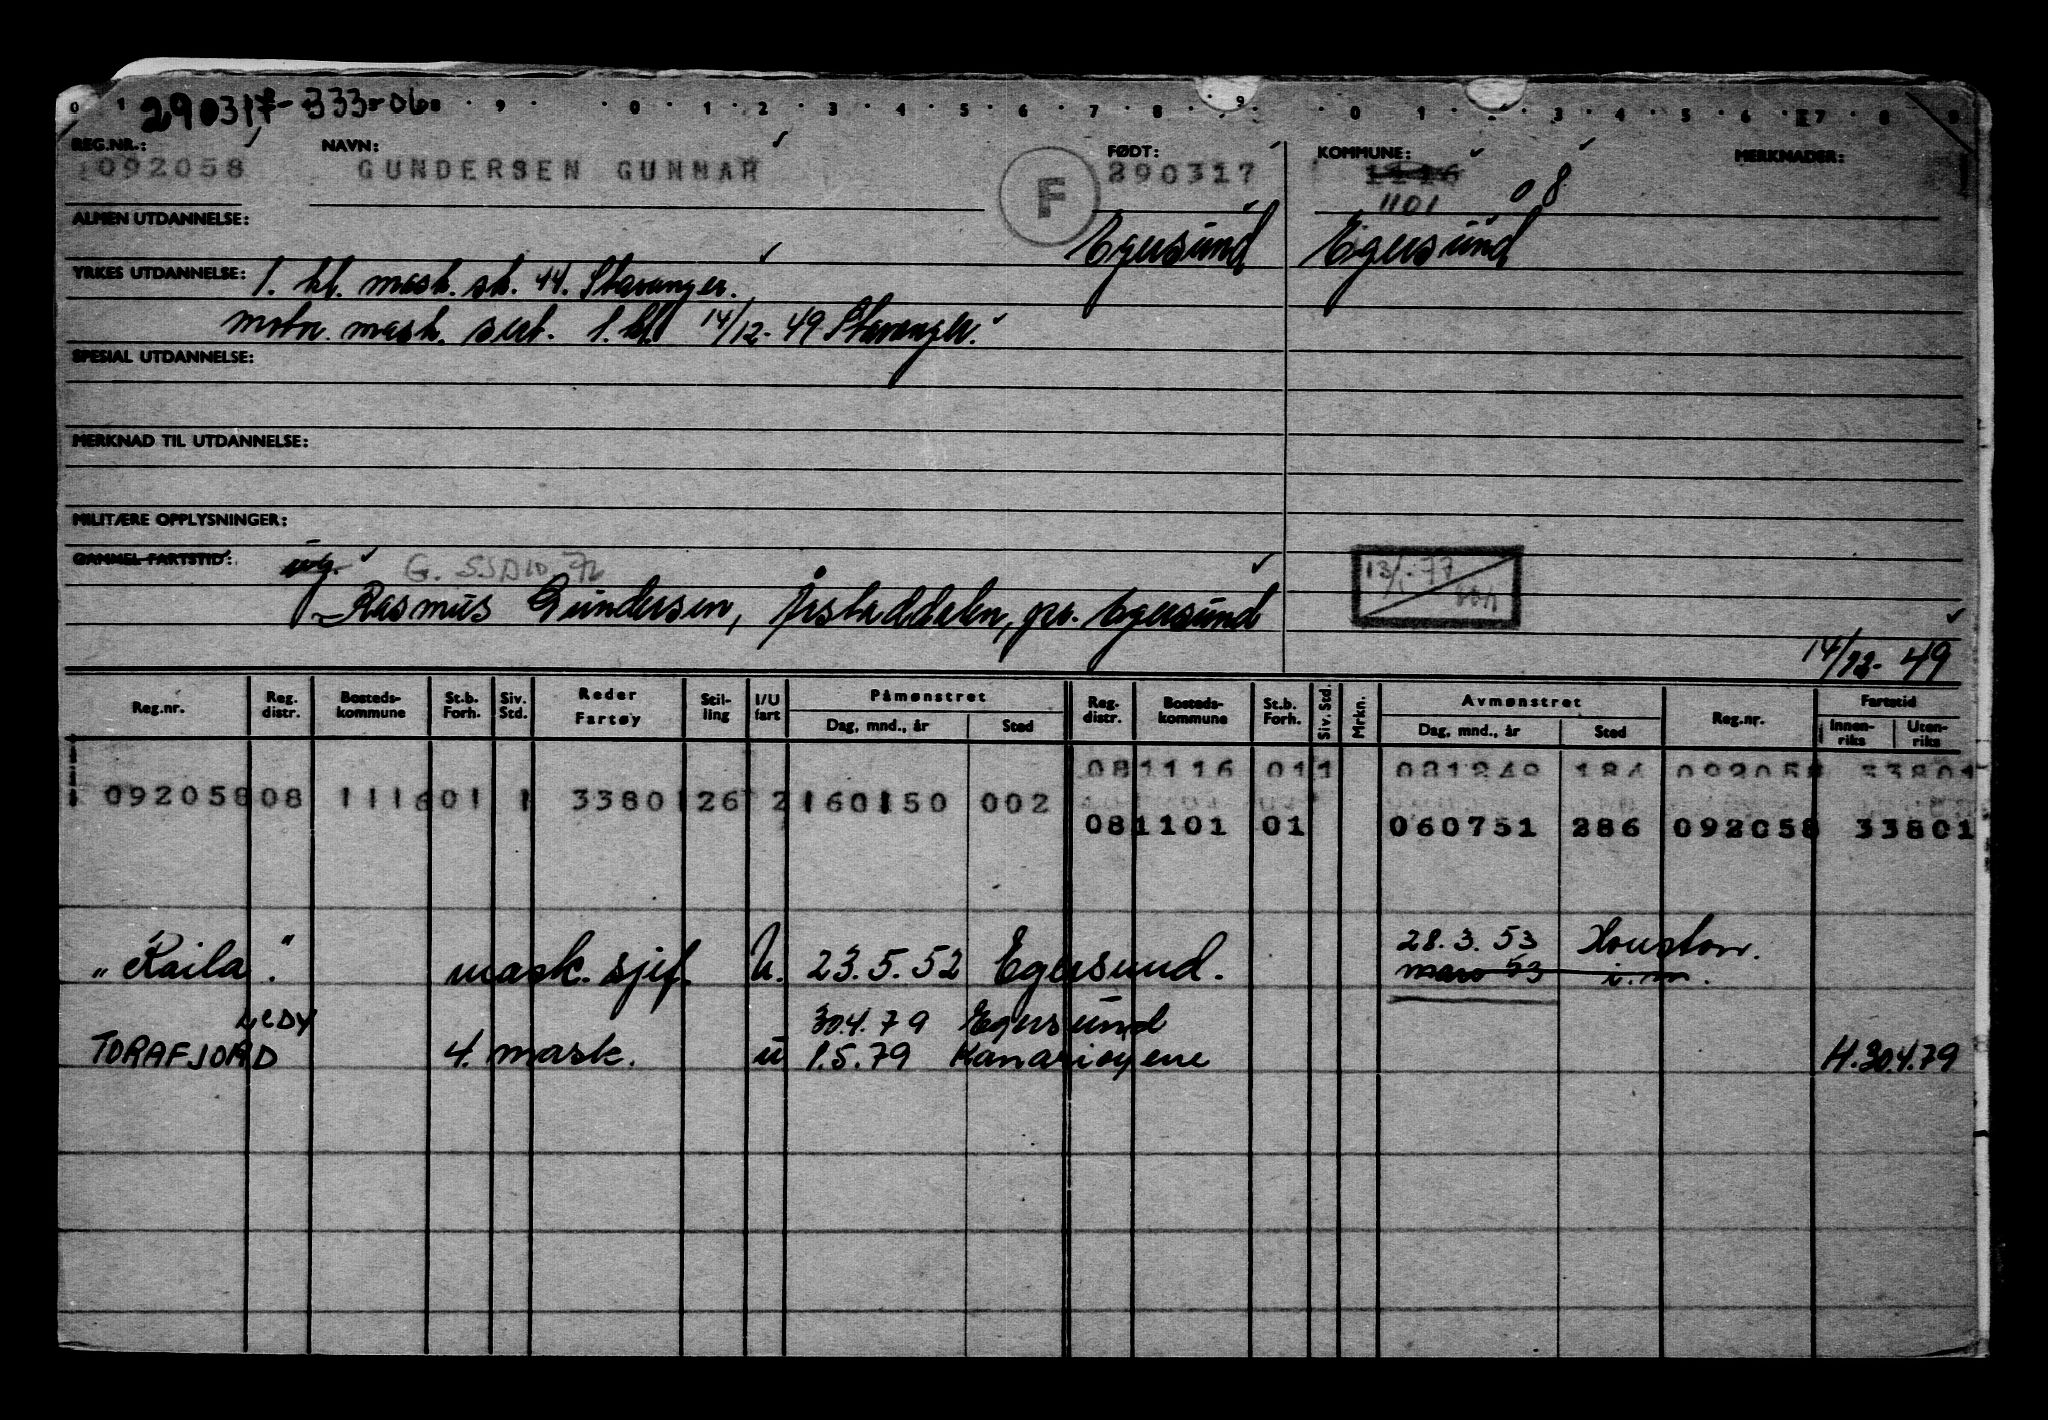 290317-333-06
REG.NR.: NAVN: FØDT: KOMMUNE: MERKNADER:
092058 GUNDERSEN GUNNAR F 290317 1116 08
1101
ALMEN UTDANNELSE: Egersund Egersund
YRKES UTDANNELSE: 1. kl. mask. sk. 44. Stavanger.
motor. mask. sert. 1. kl. 14/12-49 Stavanger.
SPESIAL UTDANNELSE:
MERKNAD TIL UTDANNELSE:
MILITÆRE OPPLYSNINGER:
GAMMEL FARTSTID: G. SSD 10 72 13/1-77
Rasmus Gundersen, Årstaddalen, pr. Egersund
14/12-49
Reg.nr. Reg. distr. Bosteds-kommune St.b. Forh. Siv. Std. Reder Fartøy Stil-ling I/U fart Påmønstret Dag, mnd., år Sted Reg. distr. Bosteds-kommune St.b. Forh. Siv. Std. Mrkn. Avmønstret Dag, mnd., år Sted Reg.nr. Fartstid Innen-riks Uten-riks
081116 011 081249 184 092058 33801
092058 08 1116 01 1 33801 26 2 160150 002
081101 01 060751 286 092058 33801
28.3.53 Houston.
"Raila". mask. sjef. U. 23.5.52 Egersund. mars 53 i.m.
LEDY 30.4.79 Egersund
TORAFJORD 4. mask. u 1.5.79 Kanariøyene H.30.4.79